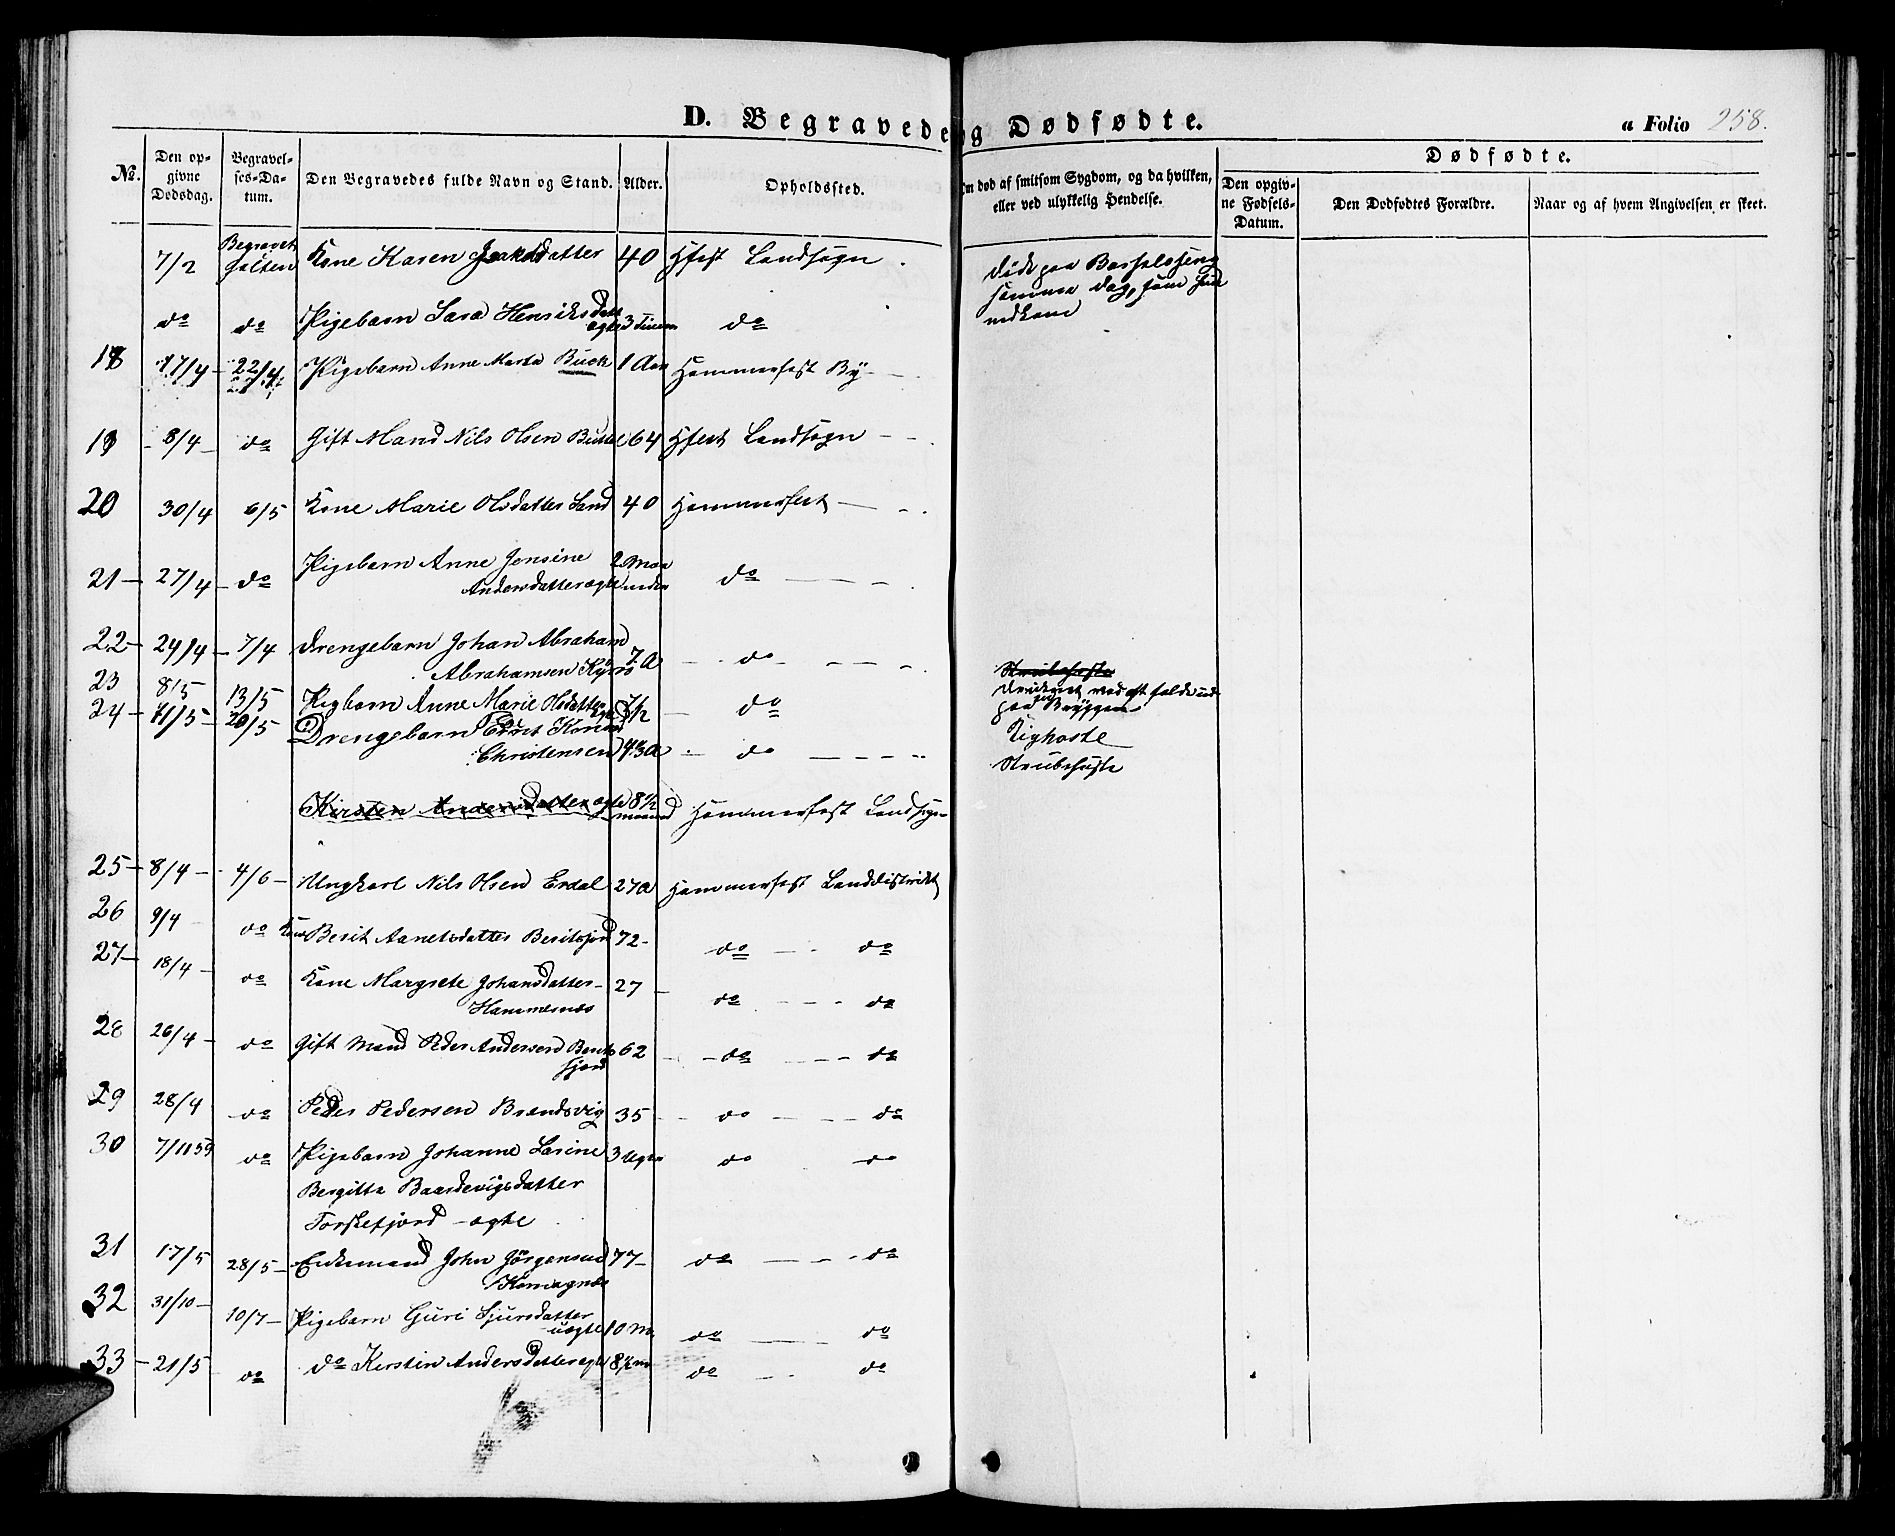 D. Begravede og Dødfødte.
a Folio 258.
No.
Den opgivne Dødsdag.
Begravelses-Datum.
Den Begravedes fulde Navn og Stand.
Alder.
Opholdssted.
Om død af smitsom Sygdom, og da hvilken, eller ved ulykkelig Hendelse.
Dødfødte.
Den opgivne Fødsels-Datum.
Den Dødfødtes Forældre.
Naar og af hvem Angivelsen er skeet.
7/2 Begravet Kone Karen 40 Hfest Landsogn
døde paa Barselseng
samme Dag, som hun
nedkom
do do Pigebarn Sara Henriksdatt
ægte 3 Timer do
18 17/4 22/4 Pigebarn Anne Marta Buck 1 Aar Hammerfest By
19 8/4 do Gift Mand Nils Olsen 64 Hfest Landsogn
20 30/4 6/5 Kone Marie Olsdatter Sand 40 Hammerfest
21 27/4 do Pigebarn Anne Jensine
Andersdatter ægte 2 Maaneder do
22 24/4 7/4 Drengebarn Johan Abraham
Abrahamsen 7 A do
Strubehoste
23 8/5 13/5 Pigbarn Anne Marie Olsdatter 7 1/2 do
Druknet ved at falde ud
paa Bryggen
24 11/5 20/5 Drengebarn
Christensen do
Kighoste
Strubehoste
Kirsten Andersdatter ægte 8 1/2
maaned Hammerfest Landsogn
25 8/4 4/6 Ungkarl Nils Olsen Erdal 27 a Hammerfest Landdistrikt
26 9/4 do Kone Berit Aanetsdatter Beritsfjord 72 do do
27 18/4 do Kone Margrete Johansdatter 27 do do
Hammernes
28 26/4 do Gift Mand Peder Andersen Berits
fjord 62 do do
29 28/4 do Peder Pedersen Brandsvig 35 do do
30 7/11 59 do Pigebarn Johanne Larine 3 Uger do do
Bergitta Baardevigsdatter
Torskefjord ægte
31 17/5 28/5 Enkemand John Jörgensen 77 do do
Komagnes
32 31/10 10/7 Pigebarn Guri Sjursdatter
uægte 10 M. do do
33 21/5 do do Kirstin Andersdatter ægte 8 1/2 m do do